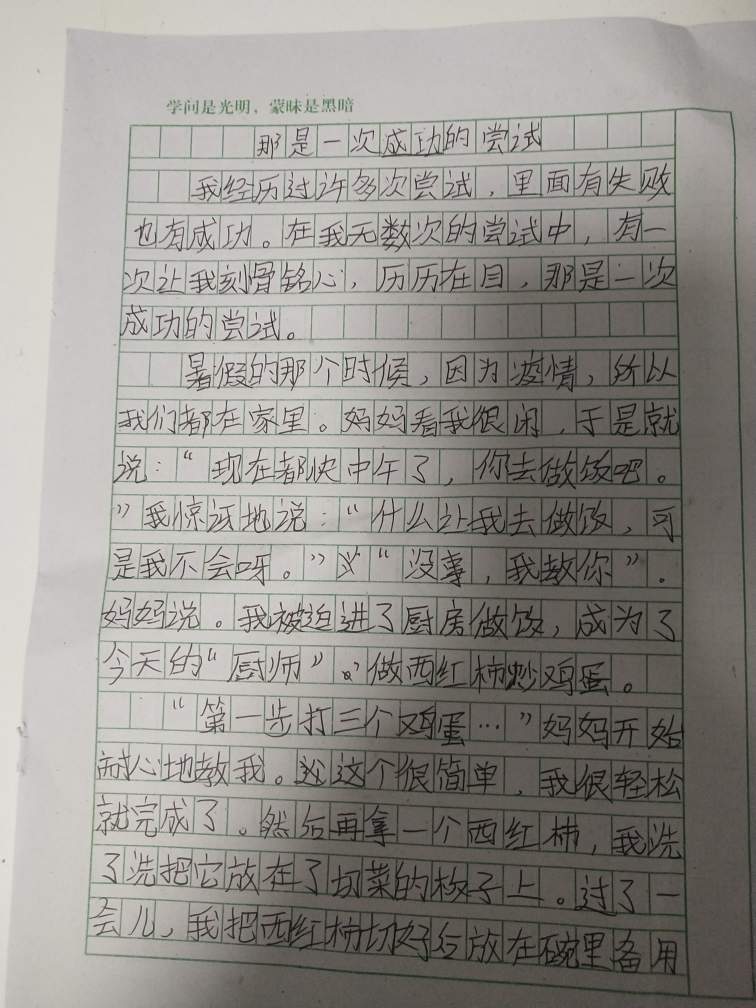 学问是光明，蒙昧是黑暗
那是一次成功的尝试
我经历过许多次尝试，里面有失败
也有成功。在我无数次的尝试中，有一
次让我刻骨铭心，历历在目，那是一次
成功的尝试。
暑假的那个时候，因为疫情，所以
我们都在家里。妈妈看我很闲，于是就
说：“现在都快中午了，你去做饭吧。
”我惊讶地说：“什么让我去做饭，可
是我不会呀。”“没事，我教你”。
妈妈说。我被迫进了厨房做饭，成为了
今天的“厨师”。做西红柿炒鸡蛋。
“第一步打三个鸡蛋…”妈妈开始
耐心地教我。这个很简单，我很轻松
就完成了。然后再拿一个西红柿，我洗
了洗把它放在了切菜的板子上。过了一
会儿，我把西红柿切好后放在碗里备用